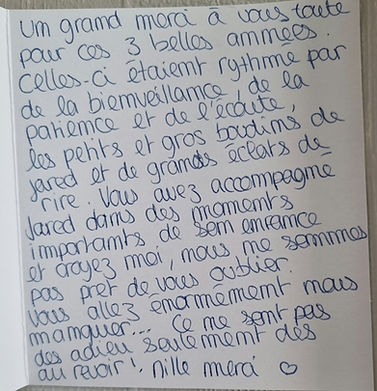 Un grand merci à vous toute
pour ces 3 belles années.
Celles-ci étaient rythmé par
de la bienveillance, de la
patience et de l'écoute,
les petits et gros boudins de
Jared et de grands éclats de
rire. Vous avez accompagné
Jared dans des moments
importants de son enfance
et croyez moi, nous ne sommes
pas prêt de vous oublier.
Vous allez énormément nous
manquer... Ce ne sont pas
des adieu seulement des
au revoir! Mille merci ♡